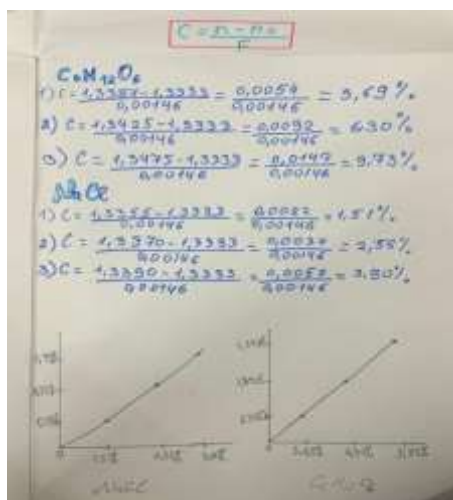 C = n - n₀ / F
C₆H₁₂O₆
1) C = 1,3387 - 1,3333 / 0,00146 = 0,0054 / 0,00146 = 3,69%
2) C = 1,3425 - 1,3333 / 0,00146 = 0,0092 / 0,00146 = 6,30%
3) C = 1,3475 - 1,3333 / 0,00146 = 0,0142 / 0,00146 = 9,73%
NaCl
1) C = 1,3355 - 1,3333 / 0,00146 = 0,0022 / 0,00146 = 1,51%
2) C = 1,3370 - 1,3333 / 0,00146 = 0,0037 / 0,00146 = 2,55%
3) C = 1,3390 - 1,3333 / 0,00146 = 0,0057 / 0,00146 = 3,90%
0
0
NaCl